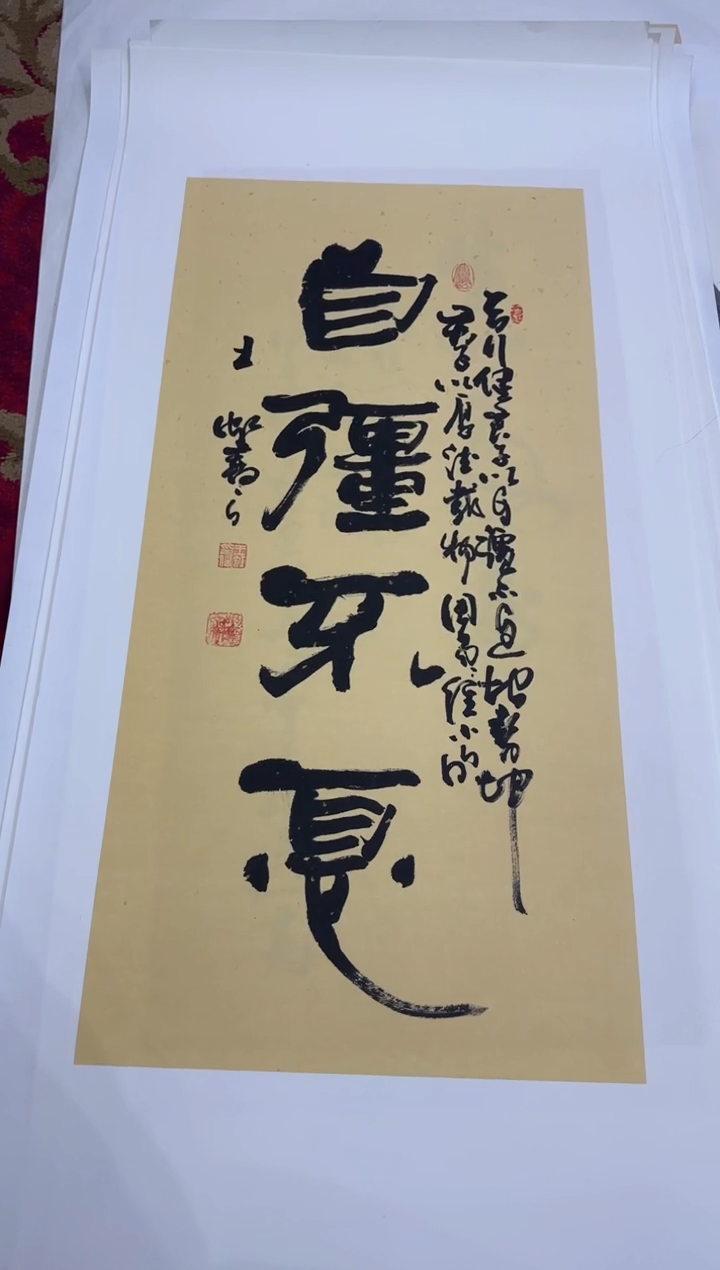 天行健君子以自彊不息地勢坤
君子以厚德載物周易經
自彊不息